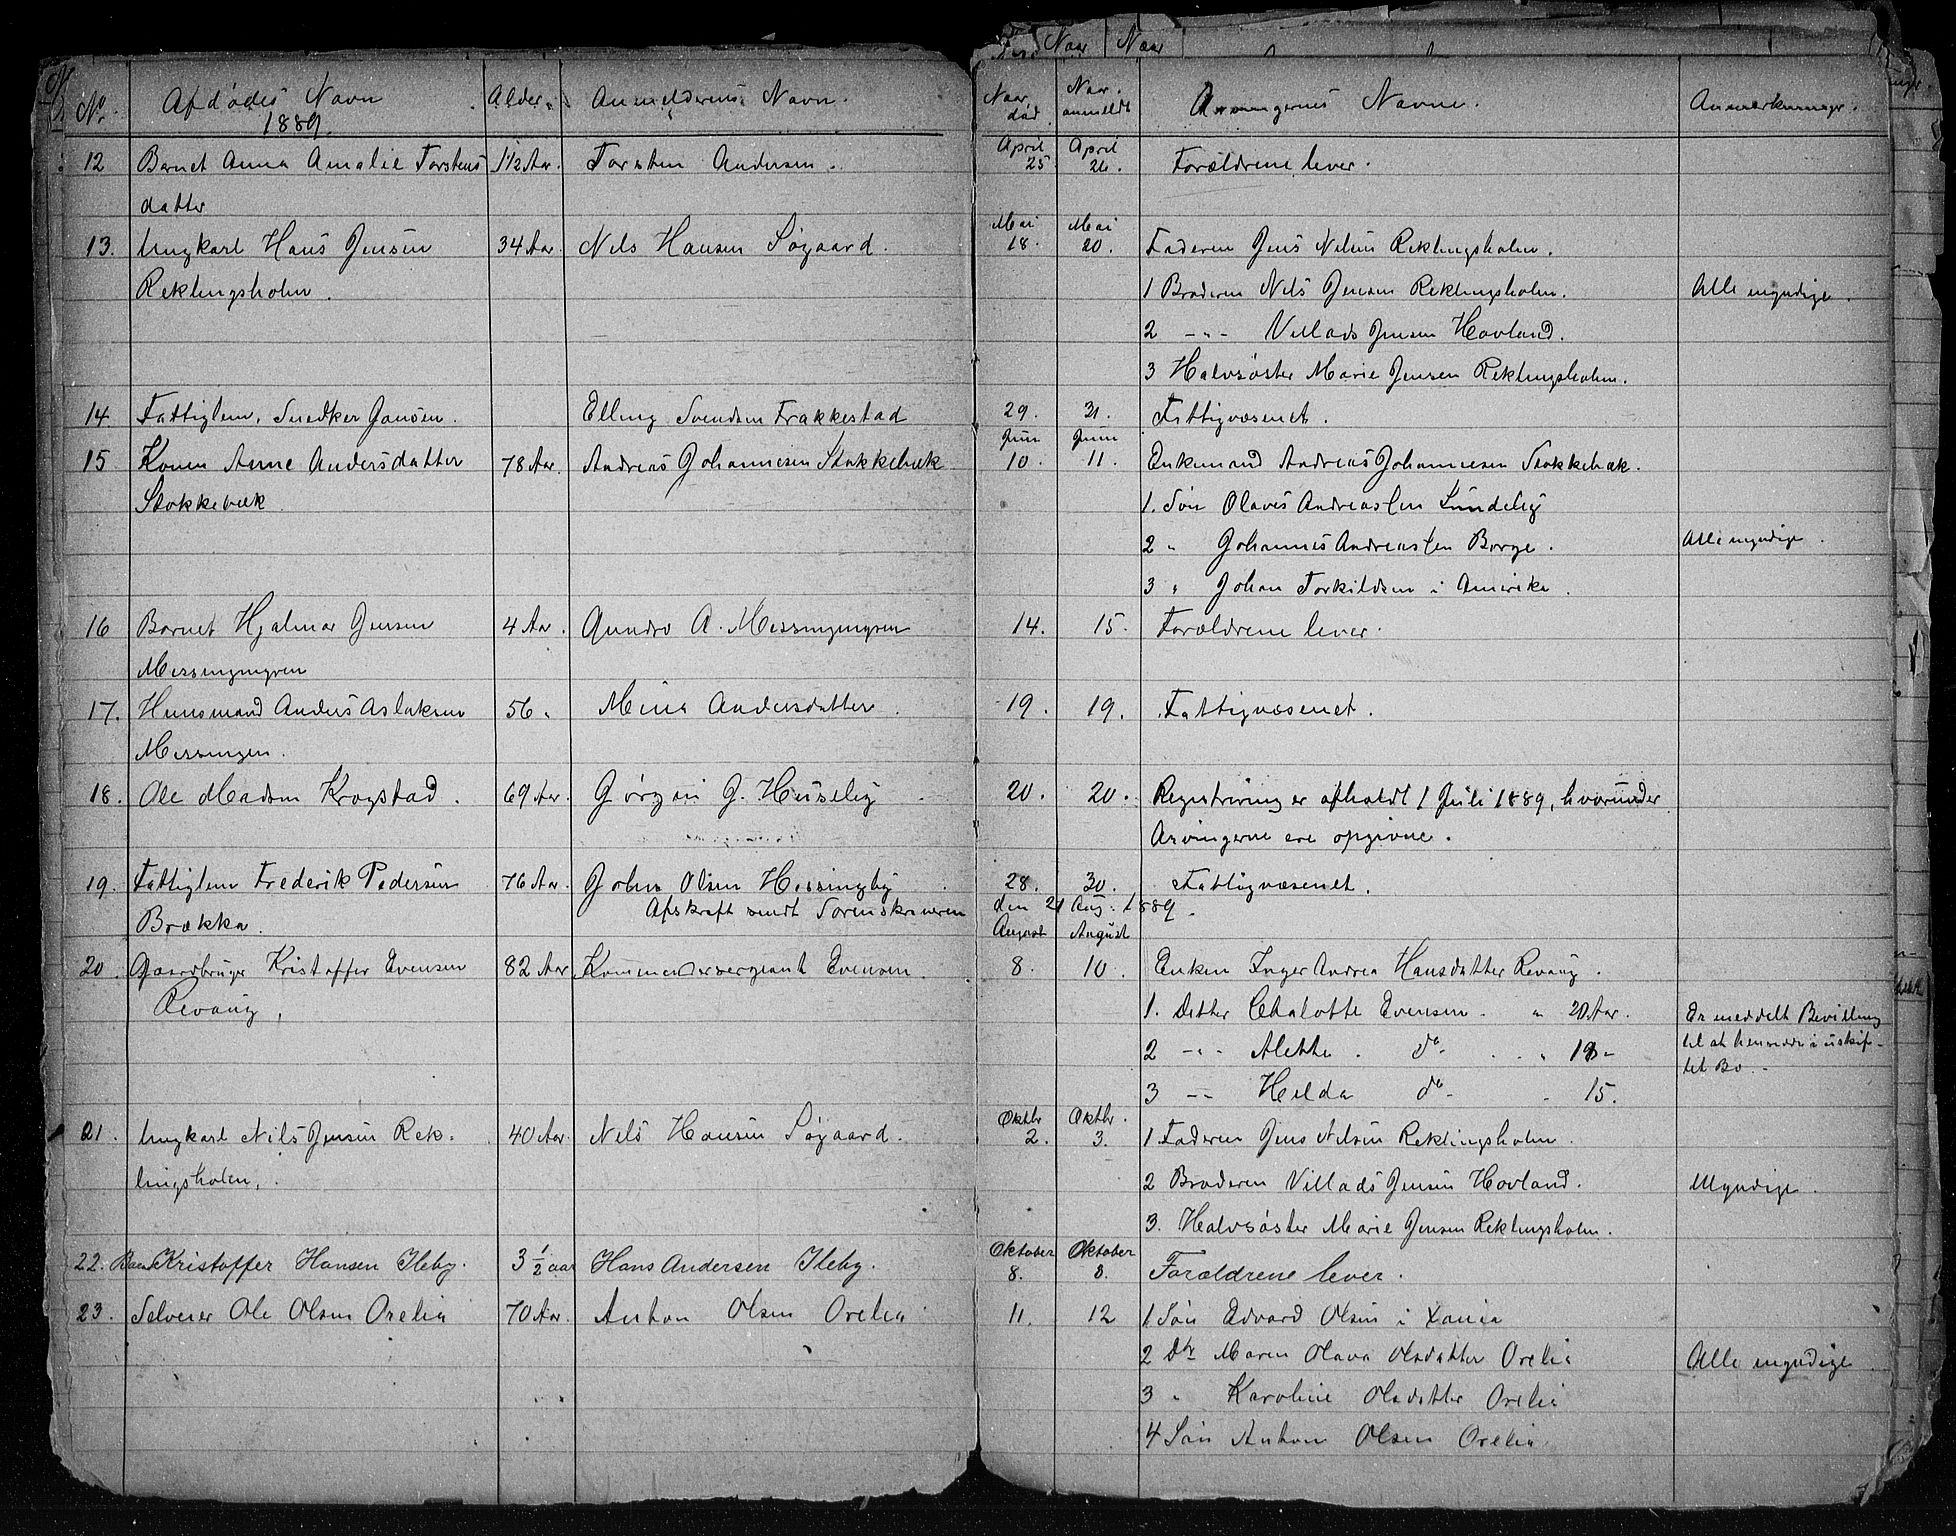 Naar Naar
No. Afdødes Navn Alder Anmelderens Navn. Naar død Naar anmeldt Arvingernes Navne. Anmærkninger.
1889.
April April
12 Barnet Anna Amalie Torstens 1 1/2 Aar. Torsten Andersen. 25 26. Forældrene lever.
datter
Mai Mai
13. Ungkarl Hans Jensen 34 Aar. Nils Hansen Søgaard. 18. 20. Faderen Jens Nilsen Reklingsholm.
Reklingsholm. 1 Broderen Nils Jensen Reklingsholm. Alle myndige.
2 -"- Villads Jensen Hovland.
3 Halvsøster Marie Jensen Reklingsholm.
14. Fattiglem, Snedker Jansen. Elling Svendsen Frakkestad 29. 31. Fattigvæsenet.
Juni Juni
15 Konen Anne Andersdatter 78 Aar. Andreas Johannesen Stokkebæk 10. 11. Enkemand Andreas Johannesen Stokkebæk.
Stokkebæk 1. Søn Olaves Andreassen Lundeby
2 " Johannes Andreassen Borge. Alle myndige.
3 " Johan Torkildsen i Amerika.
16 Barnet Hjalmar Jensen 4 Aar. A. Messingmyren 14. 15. Forældrene lever.
Messingmyren
17. Husmand Anders Aslaksen 56 " Mina Andersdatter. 19. 19. Fattigvæsenet.
Messingen.
18. Ole Madsen Krogstad. 69 Aar. Jørgen J. Huseby. 20. 20. Registrering er afholdt 1 Juli 1889, hvorunder
Arvingerne ere opgivne.
19. Fattiglem Frederik Pedersen 76 Aar. John Olsen Hessingby 28. 30. Fattigvæsenet.
Afskrift sendt Sorenskriveren den 21 Aug. 1889.
Brækka. August August
20. Gaardbruger Kristoffer Evensen 82 Aar Kommandersergeant Evensen. 8. 10. Enken Inger Andrea Hansdatter Revaug.
Revaug, 1. Datter Chalotte Evensen. " 20 Aar. Er meddelt Bevilling
2 -"- Alette. do. " 18 - til at hensidde i uskif-
tet Bo. -
3 -"- Helda do - " 15.
Oktbr Oktbr.
21. Ungkarl Nils Jensen Rek- 40 Aar. Nils Hansen Søgaard. 2. 3. 1 Faderen Jens Nilsen Reklingsholm.
lingsholm. 2 Broderen Villads Jensen Hovland. Myndige.
3. Halvsøster Marie Jensen Reklingsholm.
Oktober Oktober
22. Barn Kristoffer Hansen Ileby. 3 1/2 aar Hans Andersen Ileby. 8. 8. Forældrene lever.
23. Selveier Ole Olsen Orelia 70 Aar. Anton Olsen Orelia 11. 12 1 Søn Edvard Olsen i Xania
2 Dtr Maren Olava Olsdatter Orelia Alle myndige
3 " Karoline Olsdatter Orelia
4 Søn Anton Olsen Orelia.